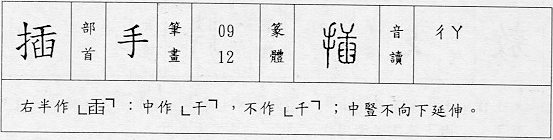 插 部首 手 筆畫 09 12 篆體 音讀 ㄔㄚ
右半作「臿」：中作「干」，不作「千」；中豎不向下延伸。